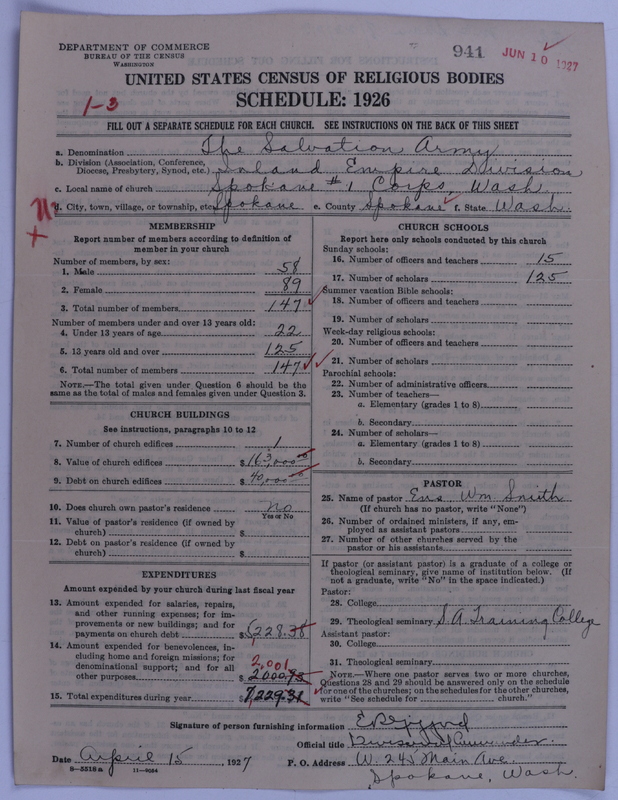 DEPARTMENT OF COMMERCE
BUREAU OF THE CENSUS
WASHINGTON
941 JUN 10 1927
UNITED STATES CENSUS OF RELIGIOUS BODIES
1-3
SCHEDULE: 1926
FILL OUT A SEPARATE SCHEDULE FOR EACH CHURCH. SEE INSTRUCTIONS ON THE BACK OF THIS SHEET
a. Denomination The Salvation Army
b. Division (Association, Conference, Diocese, Presbytery, Synod, etc.) Inland Empire Division
c. Local name of church Spokane #1 Corps, Wash
d. City, town, village, or township, etc. Spokane e. County Spokane f. State Wash.
MEMBERSHIP
Report number of members according to definition of
member in your church
Number of members, by sex:
1. Male 58
2. Female 89
3. Total number of members 147
Number of members under and over 13 years old:
4. Under 13 years of age 22
5. 13 years old and over 125
6. Total number of members 147
NOTE.—The total given under Question 6 should be the
same as the total of males and females given under Question 3.
CHURCH BUILDINGS
See instructions, paragraphs 10 to 12
7. Number of church edifices 1
8. Value of church edifices $163,000
9. Debt on church edifices $40,000
10. Does church own pastor's residence No
Yes or No
11. Value of pastor's residence (if owned by
church) $
12. Debt on pastor's residence (if owned by
church) $
EXPENDITURES
Amount expended by your church during last fiscal year
13. Amount expended for salaries, repairs,
and other running expenses; for im-
provements or new buildings; and for
payments on church debt $5228.38
14. Amount expended for benevolences, in-
cluding home and foreign missions; for
denominational support; and for all 2,001
other purposes 2000.95
15. Total expenditures during year 7,229.31
CHURCH SCHOOLS
Report here only schools conducted by this church
Sunday schools:
16. Number of officers and teachers 15
17. Number of scholars 125
Summer vacation Bible schools:
18. Number of officers and teachers
19. Number of scholars
Week-day religious schools:
20. Number of officers and teachers
21. Number of scholars
Parochial schools:
22. Number of administrative officers
23. Number of teachers—
a. Elementary (grades 1 to 8)
b. Secondary
24. Number of scholars—
a. Elementary (grades 1 to 8)
b. Secondary
PASTOR
25. Name of pastor Ens Wm Smith
(If church has no pastor, write "None")
26. Number of ordained ministers, if any, em-
ployed as assistant pastors
27. Number of other churches served by the
pastor or his assistants
If pastor (or assistant pastor) is a graduate of a college or
theological seminary, give name of institution below. (If
not a graduate, write "No" in the space indicated.)
Pastor:
28. College
29. Theological seminary S.A. Training College
Assistant pastor:
30. College
31. Theological seminary
NOTE.—Where one pastor serves two or more churches,
Questions 28 and 29 should be answered only on the schedule
for one of the churches; on the schedules for the other churches,
write "See schedule for church."
Signature of person furnishing information
Official title Divisional Commander.
Date April 15 1927 P. O. Address W. 245 Main Ave.
8—5518 a 11—9064 Spokane, Wash.